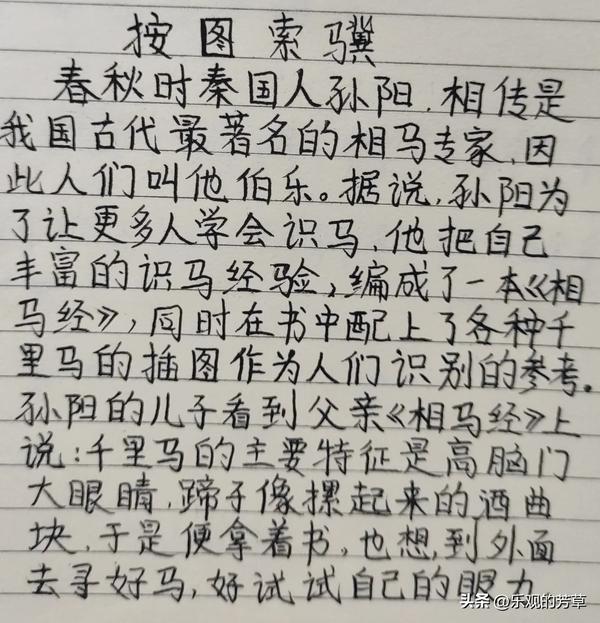 按图索骥
春秋时秦国人孙阳,相传是
我国古代最著名的相马专家,因
此人们叫他伯乐。据说,孙阳为
了让更多人学会识马,他把自己
丰富的识马经验,编成了一本《相
马经》,同时在书中配上了各种千
里马的插图作为人们识别的参考。
孙阳的儿子看到父亲《相马经》上
说:千里马的主要特征是高脑门
大眼睛,蹄子像摞起来的酒曲
块,于是便拿着书,也想,到外面
去寻好马,好试试自己的眼力
头条@乐观的芳草